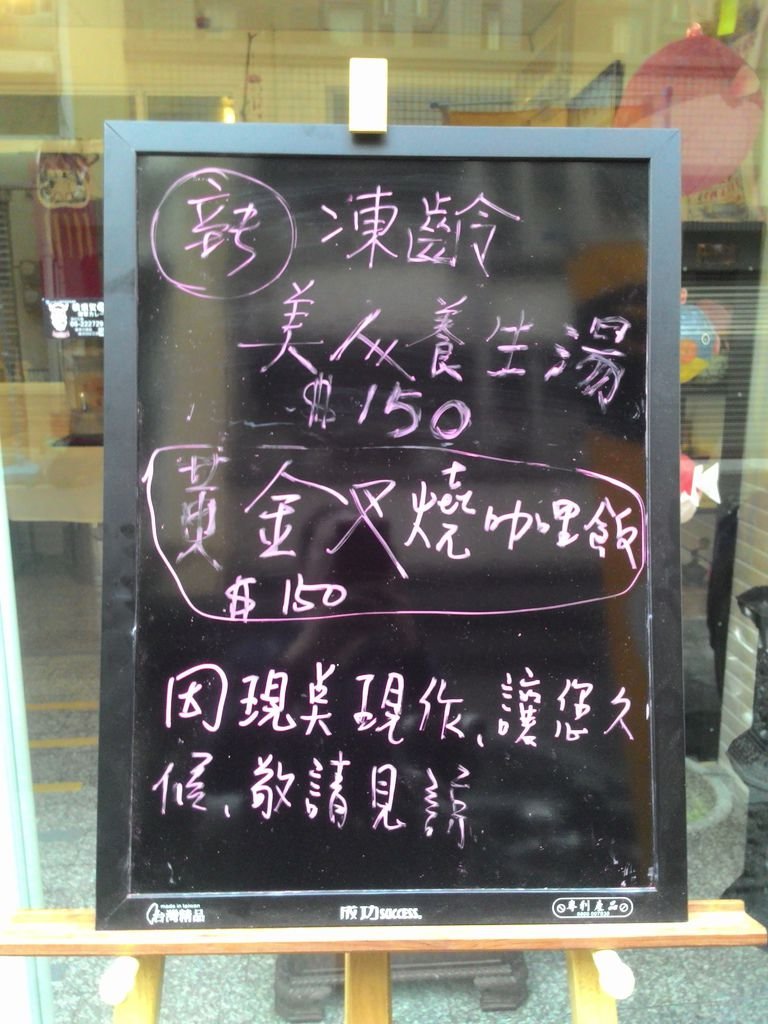 凍齡
美人養生湯
$150
黃金叉燒咖哩飯
$150
因現點現作、讓您久
候、敬請見諒
made in taiwan
台灣精品
成功 SUCCESS.
專利產品